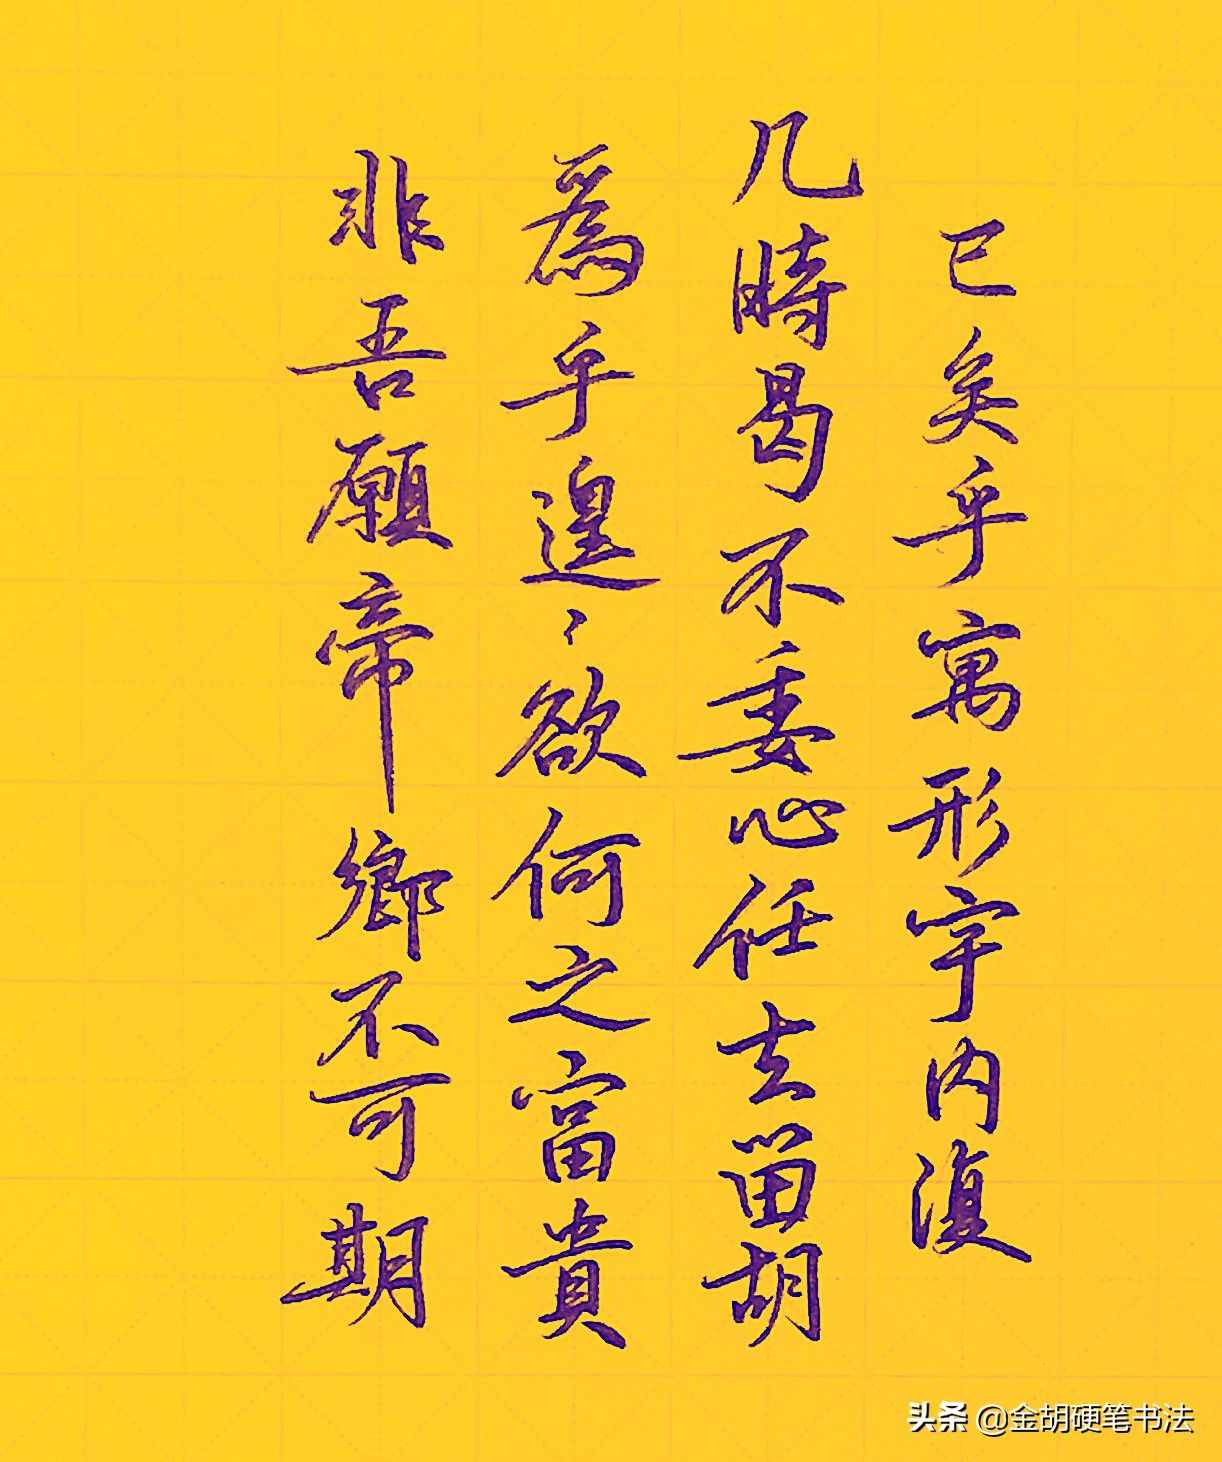 已矣乎寓形宇内復
几時曷不委心任去留胡
為乎遑〻欲何之富貴
非吾願帝鄉不可期
头条 @金胡硬笔书法